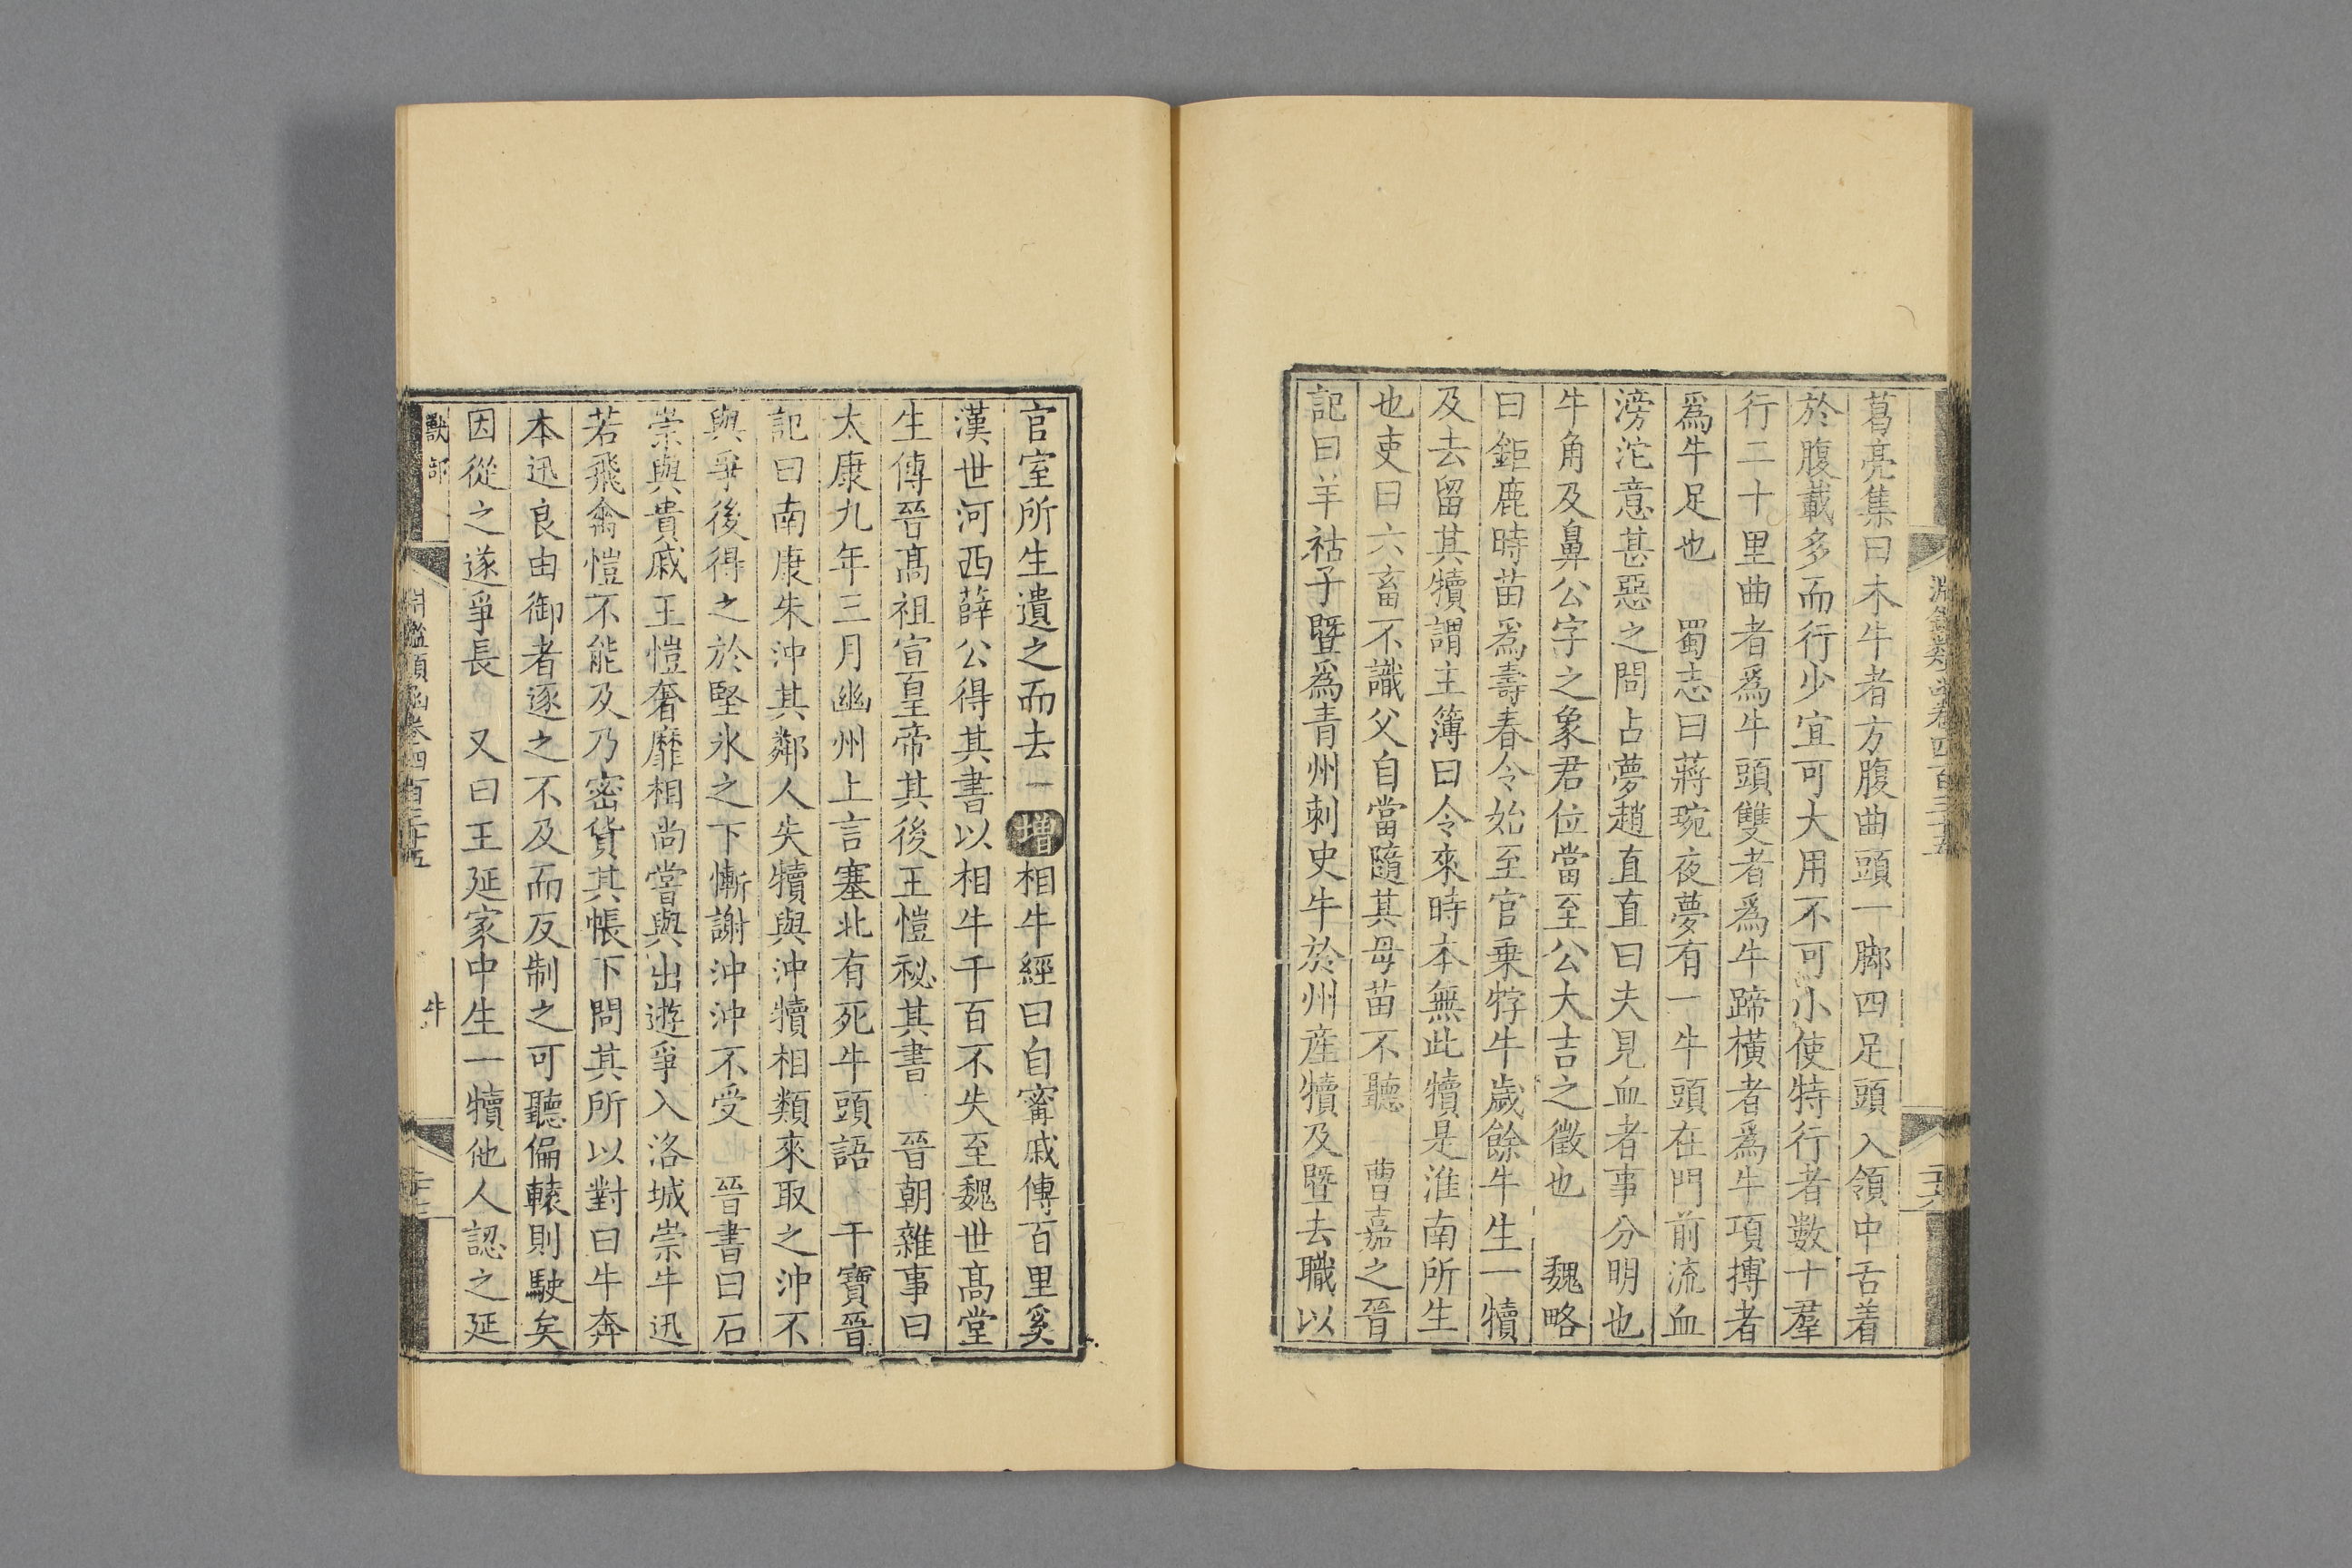 淵鑑類函卷四百三十五
葛亮集曰木牛者方腹曲頭一脚四足頭入領中舌着
於腹載多而行少宜可大用不可小使特行者數十羣
行二十里曲者爲牛頭雙者爲牛蹄橫者爲牛項摶者
爲牛足也 蜀志曰蔣琬夜夢有一牛頭在門前流血
滂沱意甚惡之問占夢趙直直曰夫見血者事分明也
牛角及鼻公字之象君位當至公大吉之徵也 魏略
曰鉅鹿時苗爲壽春令始至官乗牸牛歲餘牛生一犢
及去留其犢謂主簿曰令來時本無此犢是淮南所生
也吏曰六畜不識父自當隨其母苗不聽 曹嘉之晉
記曰羊祜子暨爲青州刺史牛於州産犢及暨去職以
官室所生遺之而去一增相牛經曰自甯戚傳百里奚
漢世河西薛公得其書以相牛千百不失至魏世髙堂
生傳晉髙祖宣皇帝其後王愷祕其書 晉朝雜事曰
太康九年三月幽州上言塞北有死牛頭語 干寶晉
記曰南康朱沖其鄰人失犢與沖犢相類來取之沖不
與爭後得之於堅氷之下慚謝沖沖不受 晉書曰石
崇與貴戚王愷奢靡相尚嘗與出遊爭入洛城崇牛迅
若飛禽愷不能及乃密貨其帳下問其所以對曰牛奔
本迅良由御者逐之不及而反制之可聽偏轅則駛矣
因從之遂爭長 又曰王延家中生一犢他人認之延
獸部 淵鑑類函卷四百三十五 牛